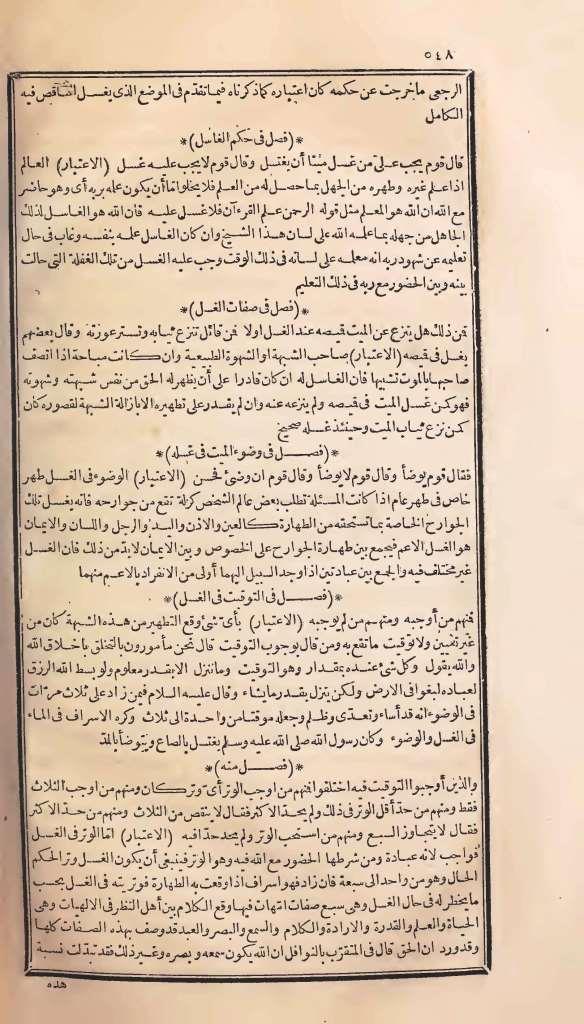 ٥٤٨
الرجعى ما خرجت عن حكمه كان اعتباره كما ذكرناه فيما تقدم فى الموضع الذى يغسل الناقص فيه
الكامل
*(فصل فى حكم الغاسل)*
قال قوم يجب على من غسل ميتا أن يغتسل وقال قوم لا يجب عليه غسل (الاعتبار) العالم
اذا علم غيره وطهره من الجهل بما حصل له من العلم فلا يخلو اما أن يكون علمه بربه أى وهو حاضر
مع الله ان الله هو المعلم مثل قوله الرحمن علم القرءآن فلا غسل عليه فان الله هو الغاسل لذلك
الجاهل من جهله بما علمه الله على لسان هذا الشيخ وان كان الغاسل علمه بنفسه وغاب فى حال
تعليمه عن شهود ربه انه معلمه على لسانه فى ذلك الوقت وجب عليه الغسل من تلك الغفلة التى حالت
بينه وبين الحضور مع ربه فى ذلك التعليم
*(فصل فى صفات الغسل)*
فمن ذلك هل ينزع عن الميت قميصه عند الغسل اولا فمن قائل تنزع ثيابه وتستر عورته وقال بعضهم
يغسل فى قميصه (الاعتبار) صاحب الشبهة او الشهوة الطبيعية وان كانت مباحة اذا اتصف
صاحبها بالموت تشبيها فان الغاسل له ان كان قادرا على أن يظهر له الحق من نفس شبهته وشهوته
فهو كمن غسل الميت فى قميصه ولم ينزعه عنه وان لم يقدر على تطهيره الا بازالة الشبهة لقصوره كان
كمن نزع ثياب الميت وحينئذ غسله صحيح
*(فصل فى وضوء الميت فى غسله)*
فقال قوم يوضأ وقال قوم لا يوضأ وقال قوم ان وضئ فحسن (الاعتبار) الوضوء فى الغسل طهر
خاص فى طهر عام اذا كانت المسئلة تطلب بعض عالم الشخص كزلة تقع من جوارحه فانه يغسل تلك
الجوارح الخاصة بما تستحقه من الطهارة كالعين والاذن واليد والرجل واللسان والايمان
هو الغسل الاعم فيجمع بين طهارة الجوارح على الخصوص وبين الايمان لابد من ذلك فان الغسل
غير مختلف فيه والجمع بين عبادتين اذا وجد السبيل اليهما أولى من الانفراد بالاعم منهما
*(فصل فى التوقيت فى الغسل)*
فمنهم من أوجبه ومنهم من لم يوجبه (الاعتبار) بأى شئ وقع التطهير من هذه الشبهة كان من
غير تعيين ولا توقيت ما تقع به ومن قال بوجوب التوقيت قال نحن مأمورون بالتخلق باخلاق الله
والله يقول وكل شئ عنده بمقدار وهو التوقيت وما ننزل الا بقدر معلوم ولو بسط الله الرزق
لعباده لبغوا فى الارض ولكن ينزل بقدر ما يشاء وقال عليه السلام فيمن زاد على ثلاث مرات
فى الوضوء انه قد أساء وتعدى وظلم وجعله موقتا من واحدة الى ثلاث وكره الاسراف فى الماء
فى الغسل والوضوء وكان رسول الله صلى الله عليه وسلم يغتسل بالصاع ويتوضأ بالمد
*(فصل منه)*
والذين أوجبوا التوقيت فيه اختلفوا فمنهم من اوجب الوتر أى وتر كان ومنهم من اوجب الثلاث
فقط ومنهم من حد أقل الوتر فى ذلك ولم يحد الاكثر فقال لا ينقص من الثلاث ومنهم من حد الاكثر
فقال لا يتجاوز السبع ومنهم من استحب الوتر ولم يحد حدا فيه (الاعتبار) اما الوتر فى الغسل
فواجب لانه عبادة ومن شرطها الحضور مع الله فيه وهو الوتر فينبغى أن يكون الغسل وتر الحكم
الحال وهو من واحد الى سبعة فان زاد فهو اسراف اذا وقعت به الطهارة فوتريته فى الغسل بحسب
ما يخطر له فى حال الغسل وهى سبع صفات امهات فيها وقع الكلام بين أهل النظر فى الالهيات وهى
الحياة والعلم والقدرة والارادة والكلام والسمع والبصر والعبد قد وصف بهذه الصفات كلها
وقد ورد ان الحق قال فى المتقرب بالنوافل ان الله يكون سمعه وبصره وغير ذلك فقد تبدلت نسبة
هذه